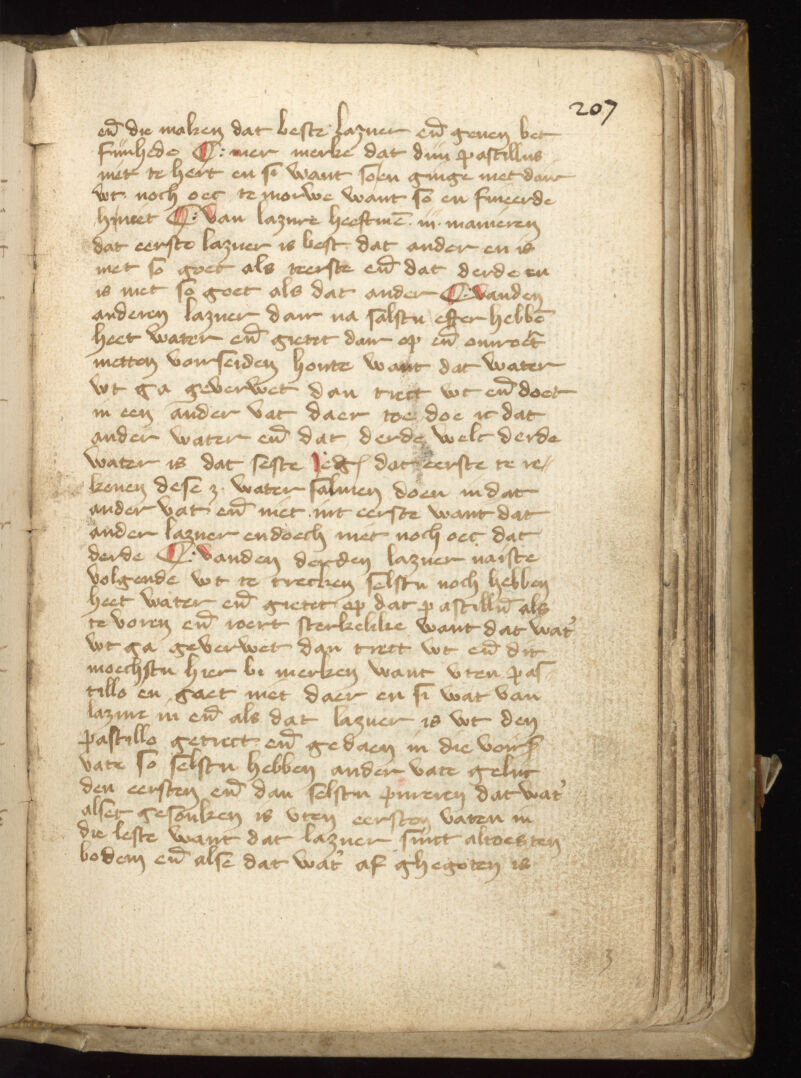 207
en̄ die maken dat beste lazuer en̄ geuen bet
finhede ¶ : mer merke dat dijn pastillus
niet te hert en si want soen ginge niet daer
wt noch oec te morwe want so en smeerde
hi niet ¶ : van lazure heeftmē .iij. manieren
dat eerste lazuer is best dat ander en is
niet so goet als teerste en̄ dat derde en
is niet so goet als dat ander ¶ : vanden
anderen lazuer daer na salstu effer hebbē
heet water en̄ gietet daer op en̄ omroet
metten vorseiden houte want dat water
wt ga geverwet dan trect wt en̄ doet
in een ander vat daer toe doe ic dat
ander water en̄ dat derde welc derde
water is dat seste jeg dat eerste te re-
kenen dese 3. water salmen doen in dat
ander vat en̄ niet int eerste want dat
ander lazuer endoech niet noch oec dat
derde ¶ : vanden derden lazuer naiste
volgende wt te trecken selstu noch hebben
heet water en̄ gietet op dat pastillū als
te voren en̄ roert sterkelike want dat wat'
wt ga geverwet dan trect wt en̄ dit
moechstu hier bi merken want vten pas-
tillo en gaet niet daer en si wat van
lazure in en̄ als dat lazuer is wt den
pastillo getrect en̄ gedaen in die vors
vate so selstu hebben ander vate gelijc
den eersten en̄ dan selstu pureren dat wat'
alset gesonken is vten eersten vaten in
die leste want dat lazuer sinct altoes ten
bodem en̄ alse dat wat' af ghegoten is
3